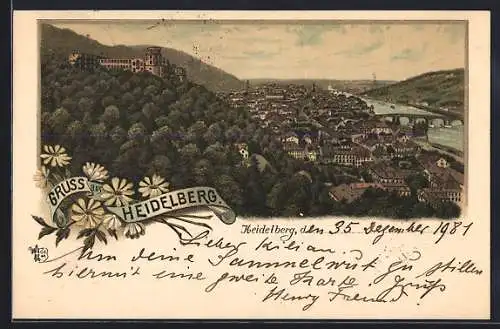 GRUSS aus HEIDELBERG.
Heidelberg, den 35. Dezember 1981
Lieber Kilian.
Um deine Sammelwut zu stillen
hiermit eine zweite Karte Gruß
Henry Freund